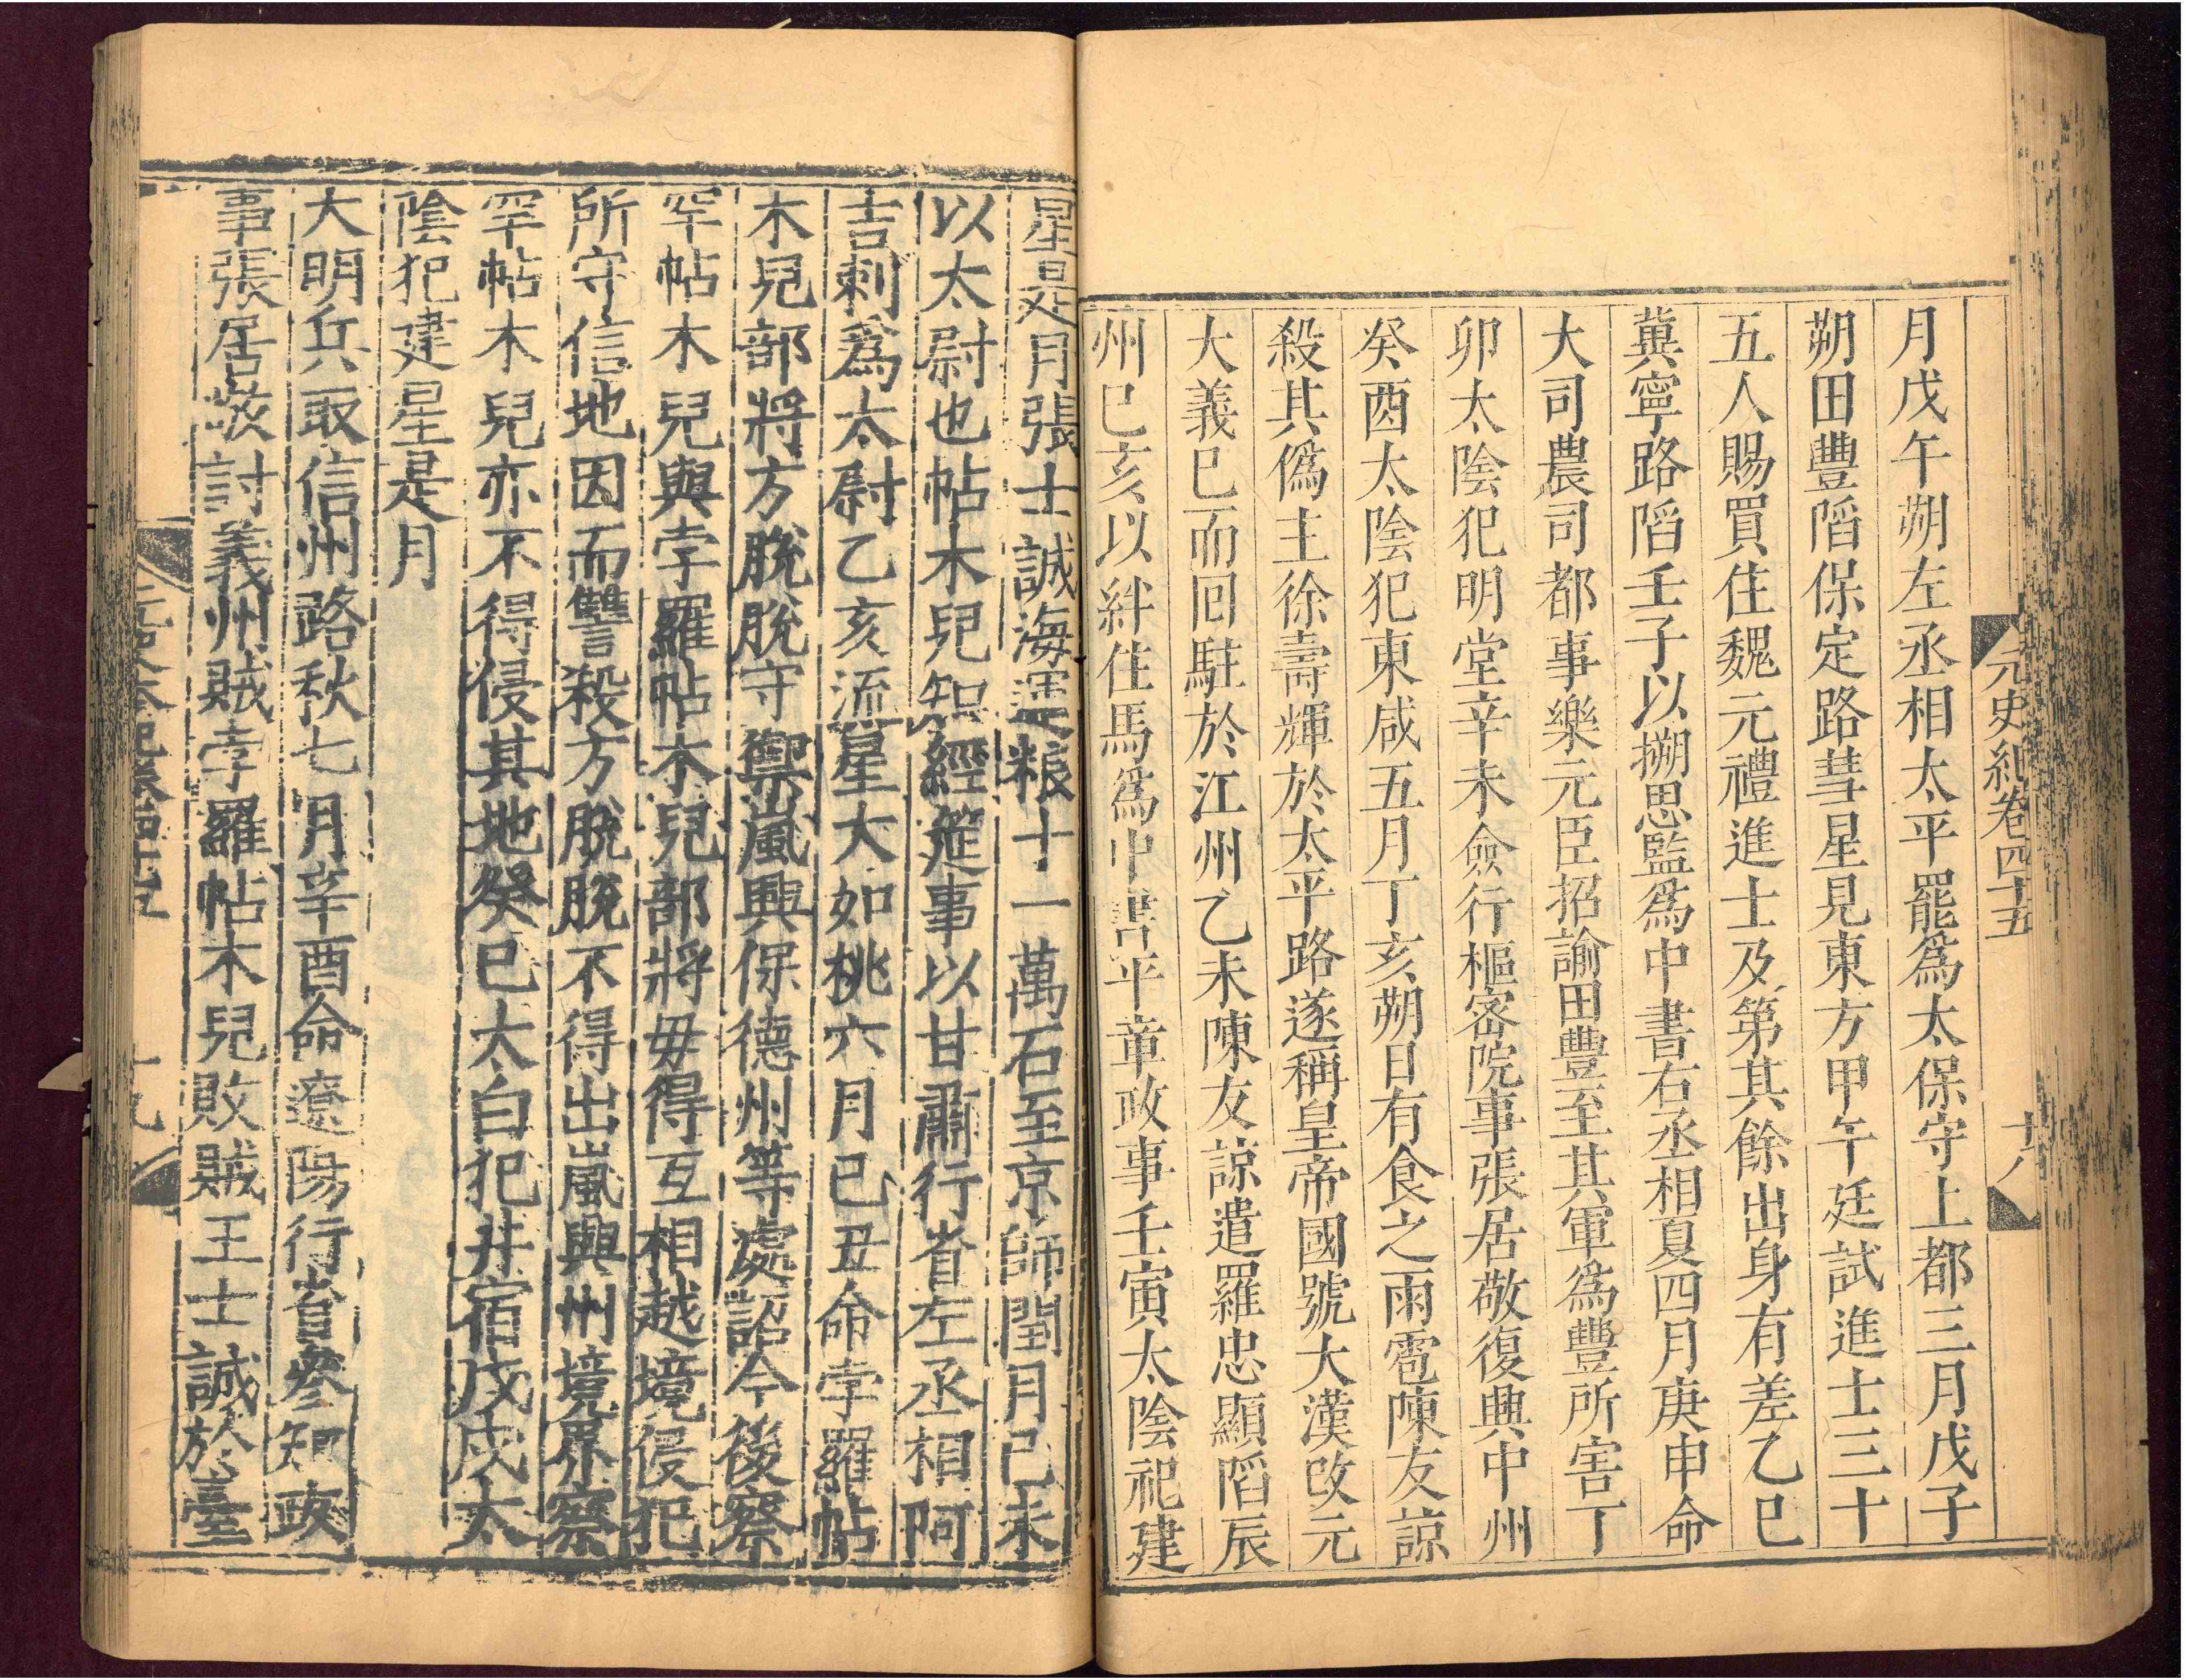 元史紀卷四十五 十八
月戊午朔左丞相太平罷爲太保守上都三月戊子
朔田豐陷保定路彗星見東方甲午廷試進士三十
五人賜買住魏元禮進士及第其餘出身有差乙巳
冀寧路陷壬子以搠思監爲中書右丞相夏四月庚申命
大司農司都事樂元臣招諭田豐至其軍爲豐所害丁
卯太陰犯明堂辛未僉行樞密院事張居敬復興中州
癸酉太陰犯東咸五月丁亥朔日有食之雨雹陳友諒
殺其僞主徐壽輝於太平路遂稱皇帝國號大漢改元
大義已而囘駐於江州乙未陳友諒遣羅忠顯陷辰
州己亥以絆住馬爲中書平章政事壬寅太陰祀建
星是月張士誠海運粮十一萬石至京師閏月己未
以太尉也帖木兒知經筵事以甘肅行省左丞相阿
吉剌爲太尉乙亥流星大如桃六月己丑命孛羅帖
木兒部將方脫脫守禦嵐興保德州等處詔今後察
罕帖木兒與孛羅帖木兒部將毋得互相越境侵犯
所守信地因而讐殺方脫脫不得出嵐興州境界察
罕帖木兒亦不得侵其地癸巳太白犯井宿戊戌太
陰犯建星是月
大明兵取信州路秋七月辛酉命遼陽行省參知政
事張居敬討義州賊孛羅帖木兒敗賊王士誠於臺
十九